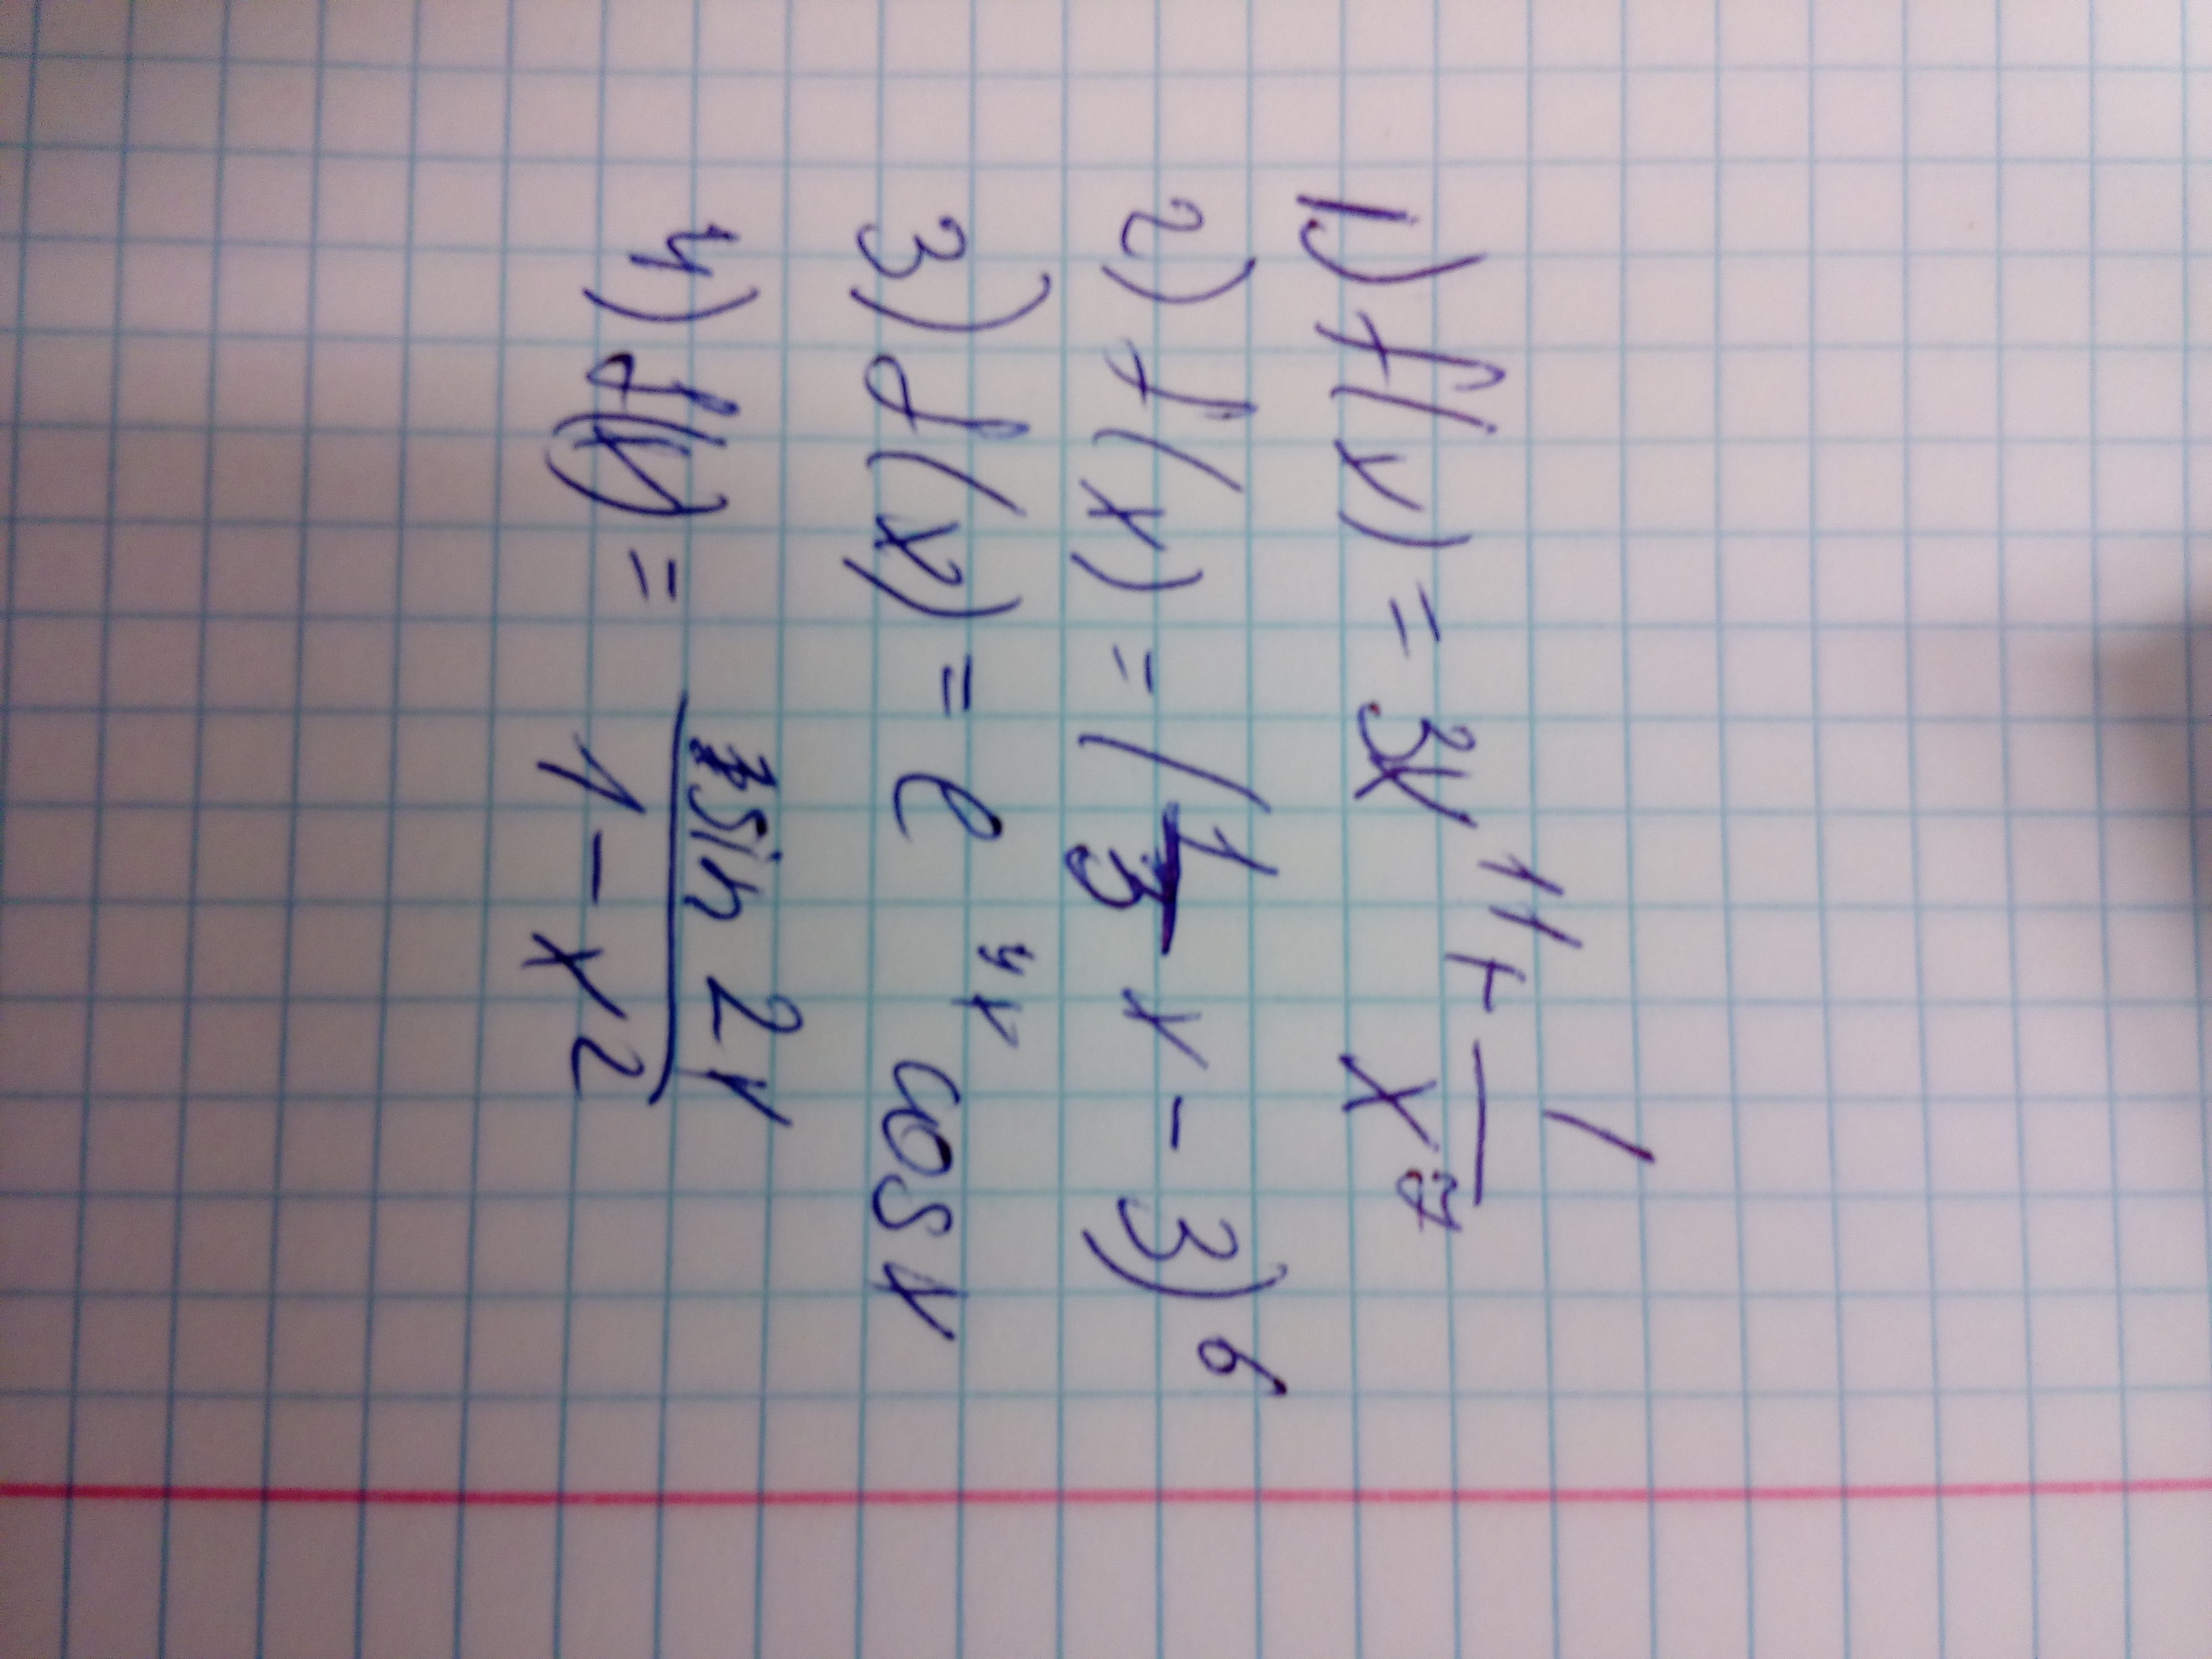 1) f(x) = 3x^11 + 1/x^7
2) f(x) = (1/3 x - 3)^6
3) f(x) = e^4x cos x
4) f(x) = sin 2x / 1 - x^2